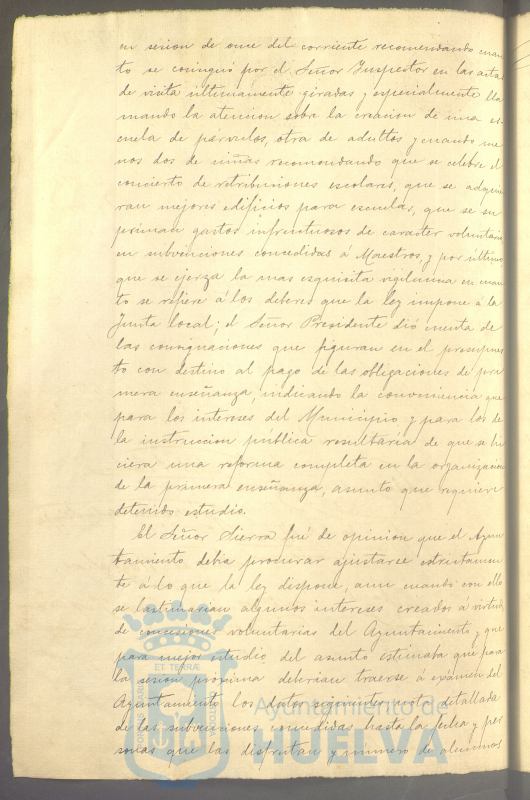 en sesion de once del corriente recomendando cuan
to se consignó por el Señor Inspector en las actas
de visita últimamente giradas y especialmente lla
mando la atencion sobre la creacion de una es
cuela de párvulos, otra de adultos y cuando me
nos dos de niñas recomendando que se celebre el
concierto de retribuciones escolares, que se adquie
ran mejores edificios para escuelas, que se su
priman gastos infructuosos de caracter voluntario
en subvenciones concedidas á Maestros, y por último
que se ejerza la mas esquisita vigilancia en cuan
to se refiere á los deberes que la ley impone á la
Junta local; el Señor Presidente dió cuenta de
las consignaciones que figuran en el presupues
to con destino al pago de las obligaciones de pri
mera enseñanza, indicando la conveniencia que
para los intereses del Municipio y para los de
la instruccion pública resultaria de que se hi
ciera una reforma completa en la organizacion
de la primera enseñanza, asunto que requiere
detenido estudio.
El Señor Sierra fué de opinion que el Ayun
tamiento debia procurar ajustarse estrictamen
te á lo que la ley dispone, aun cuando con ello
se lastimarian algunos intereses creados á virtud
de concesiones voluntarias del Ayuntamiento y que
para mejor estudio del asunto estimaba que para
la sesion próxima deberian traerse á exámen del
Ayuntamiento los datos siguientes: nota detallada
de las subvenciones concedidas hasta la fecha y per
sonas que las disfrutan y número de alumnos
ET TERRAE
Ayuntamiento de
HUELVA